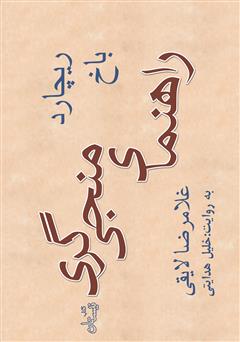 ریچارد
باخ
راهنمای
منجی گری
غلامرضا لایقی
به روایت:خلیل هدایتی